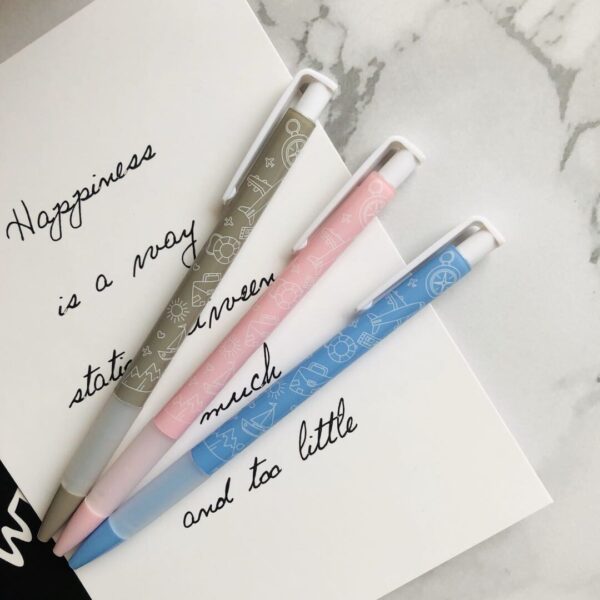 Happiness
is a way
static
much
and too little